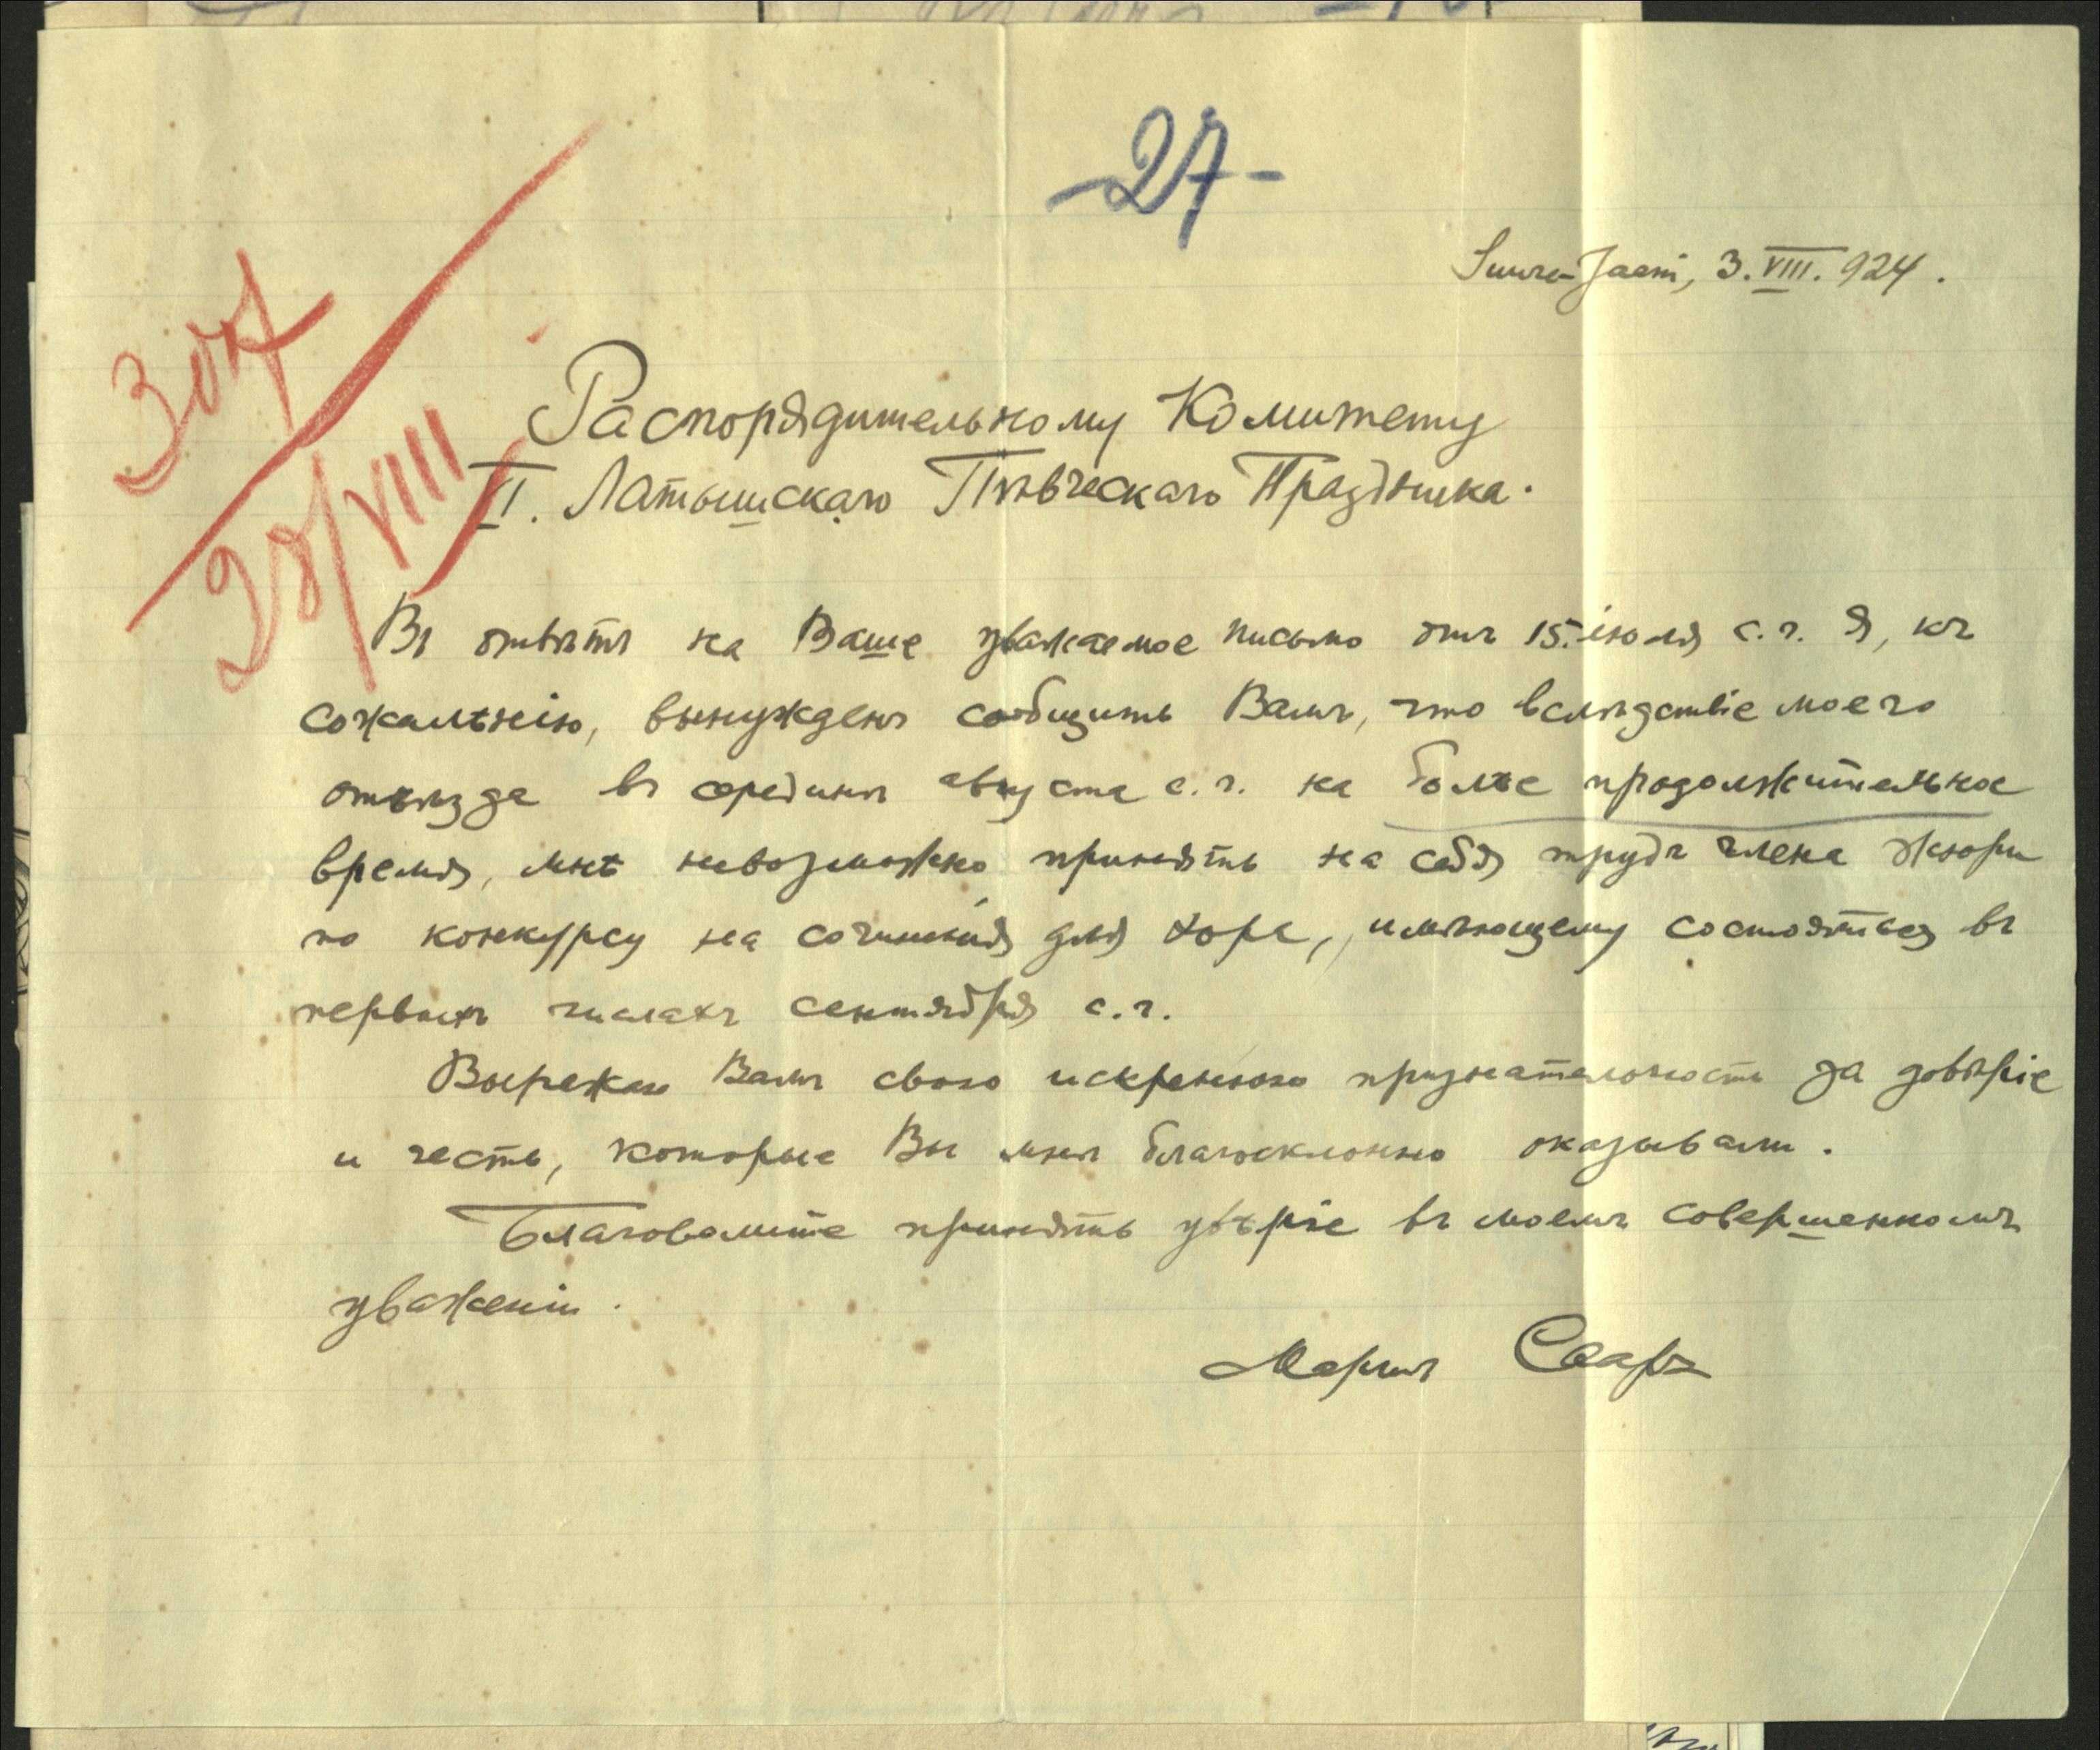 -27-
Suure-Jaani, 3. VIII. 924.
307
28/VIII
Распорядительному Комитету
VI. Латышскаго Пѣвческаго Праздника.
Въ отвѣтъ на Ваше уважаемое письмо отъ 15. іюля с.г. я, къ
сожалѣнію, вынужденъ сообщить Вамъ, что вслѣдствіе моего
отъѣзда въ срединѣ августа с.г. на болѣе продолжительное
время, мнѣ невозможно принять на себя трудъ члена жюри
по конкурсу на сочиненія для хора, имѣющему состояться въ
первыхъ числахъ сентября с.г.
Выражаю Вамъ свою искреннюю признательность за довѣріе
и честь, которые Вы мнѣ благосклонно оказывали.
Благоволите принять увѣріе въ моемъ совершенномъ
уваженіи.
Мартъ Сааръ